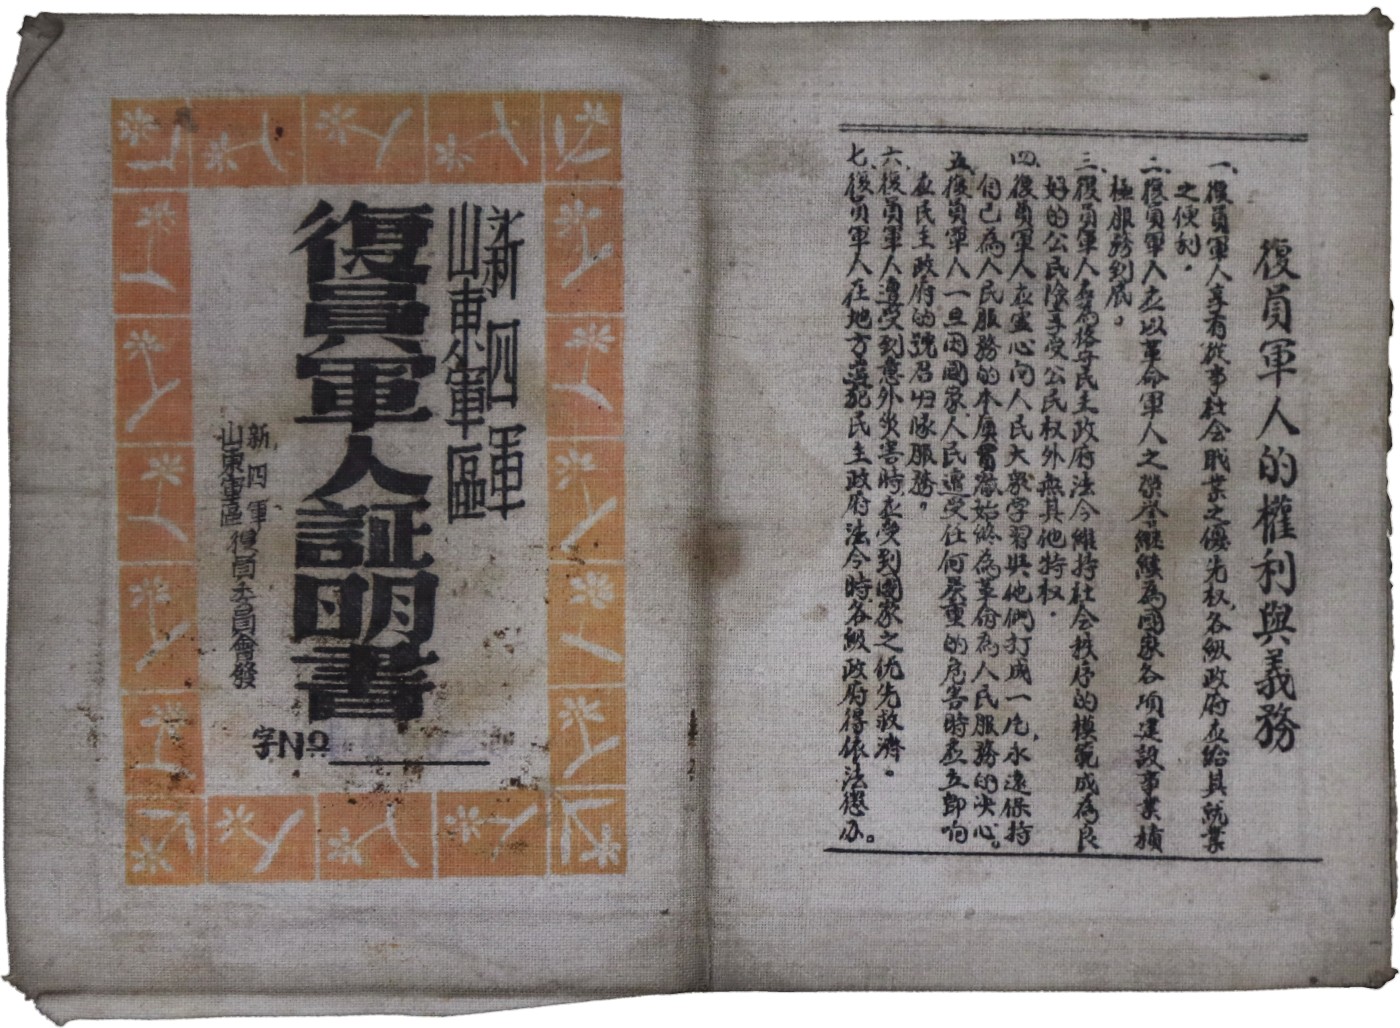 復員軍人的權利與義務
一、復員軍人享有從事社会职業之優先权,各級政府应給其就業
之便利。
二、復員軍人应以革命軍人之榮誉継續為國家各項建設事業積
極服務到底。
三、復員軍人应為恪守民主政府法令維持社会秩序的模範成為良
好的公民除享受公民权外無其他特权。
四、復員軍人应虛心向人民大眾学習與他們打成一片,永遠保持
自己為人民服務的本質貫徹始終為革命為人民服務的决心。
五、復員軍人一旦因國家人民遭受任何嚴重的危害時应立即响
应民主政府的號召归隊服務。
六、復員軍人遭受到意外災害時应受到國家之优先救濟。
七、復員軍人在地方違犯民主政府法令時各級政府得依法懲办。
新四軍
山東軍區
復員軍人証明書
新四軍
山東軍區
復員委員會發
字№